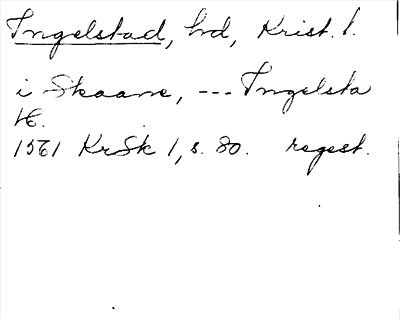 Ingelstad, hd, Krist. l.
i Skaane, --- Ingelsta
H.
1561 KrSk 1, s. 80. regest.